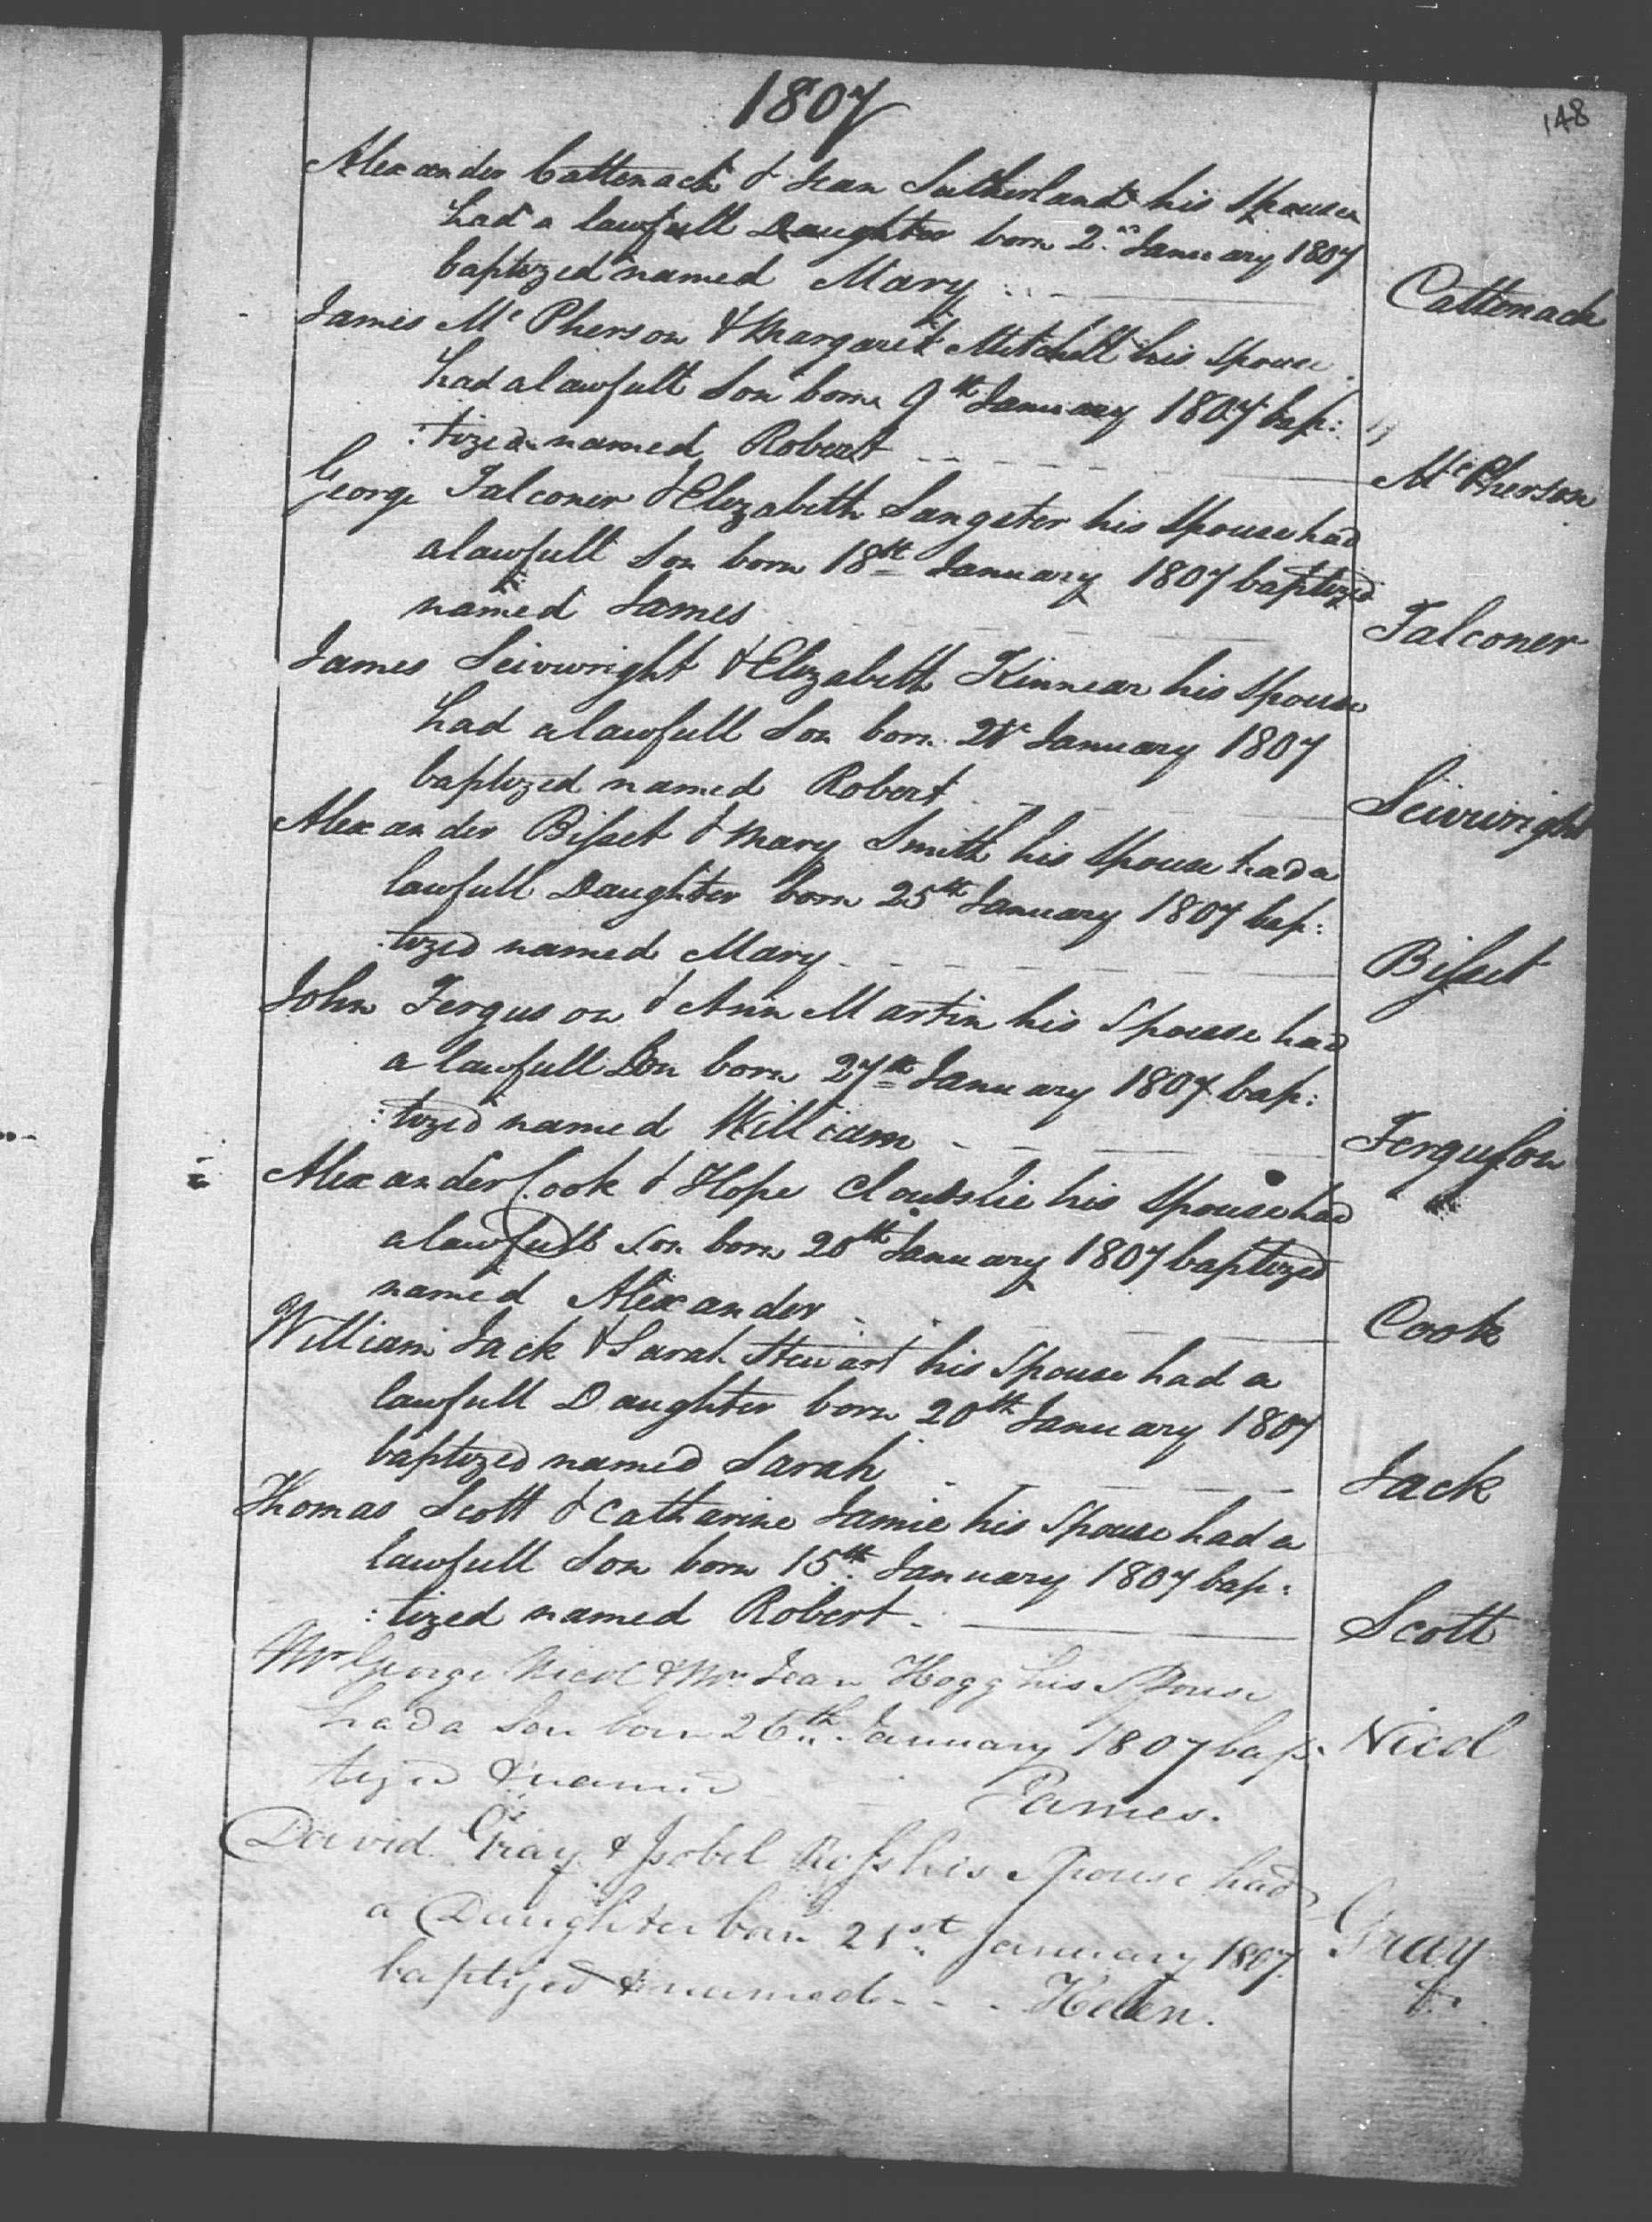 148
1807
Alexander Cattenach & Jean Sutherland his Spouse
had a lawfull Daughter born 2nd January 1807
baptized named Mary
Cattenach
James McPherson & Margaret Mitchell his Spouse
had a lawfull Son born 9th January 1807 bap:
:tized named Robert
McPherson
George Falconer & Elizabeth Sangster his Spouse had
a lawfull Son born 18th January 1807 baptized
named James
Falconer
James Seivwright & Elizabeth Kinnear his Spouse
had a lawfull Son born January 1807
baptized named Robert
Seivwright
Alexander Bisset & Mary Smith his Spouse had a
lawfull Daughter born 25th January 1807 bap:
:tized named Mary
Bisset
John Ferguson & Ann Martin his Spouse had
a lawfull Son born 27th January 1807 bap:
:tized named William
Ferguson
Alexander Cook & Hope Cloudslie his Spouse had
a lawfull Son born 20th January 1807 baptized
named Alexander
Cook
William Jack & Sarah Stewart his Spouse had a
lawfull Daughter born 20th January 1807
baptized named Sarah
Jack
Thomas Scott & Catharine Jamie his Spouse had a
lawfull Son born 15th January 1807 bap:
:tized named Robert
Scott
Mr George Nicol & Mrs Jean Hogg his Spouse
had a Son born 26th January 1807 bap:
tized & named James.
Nicol
David Gray & Isobel Ross his Spouse had
a Daughter born 21st January 1807
baptized & named - - - Helen.
Gray